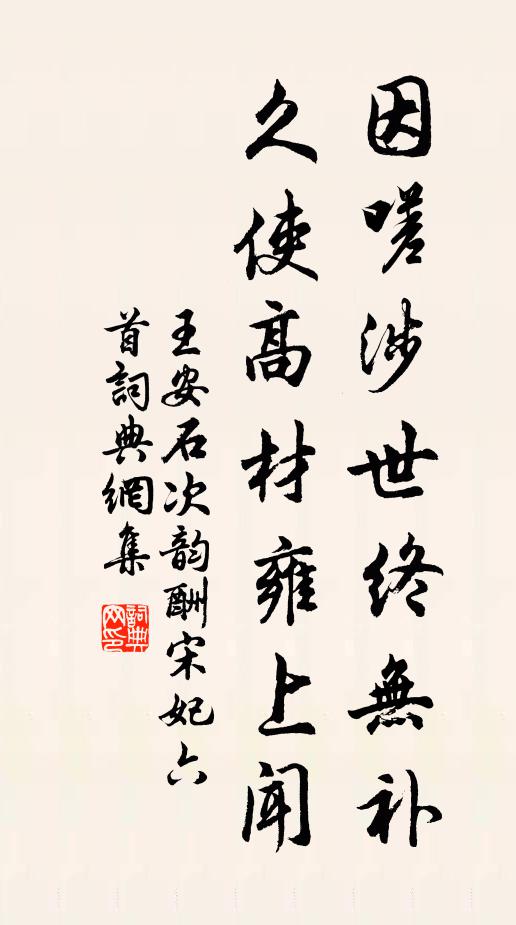 因嗟涉世终無补
久使高材雍上闻
王安石次韵酬宋妃六
首詞典網集
詞典
网印